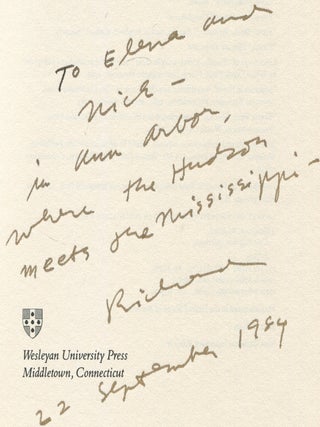 To Elena and
Nick –
in Ann Arbor,
where the Hudson
meets the Mississippi –
Richard
Wesleyan University Press
Middletown, Connecticut
22 September 1984